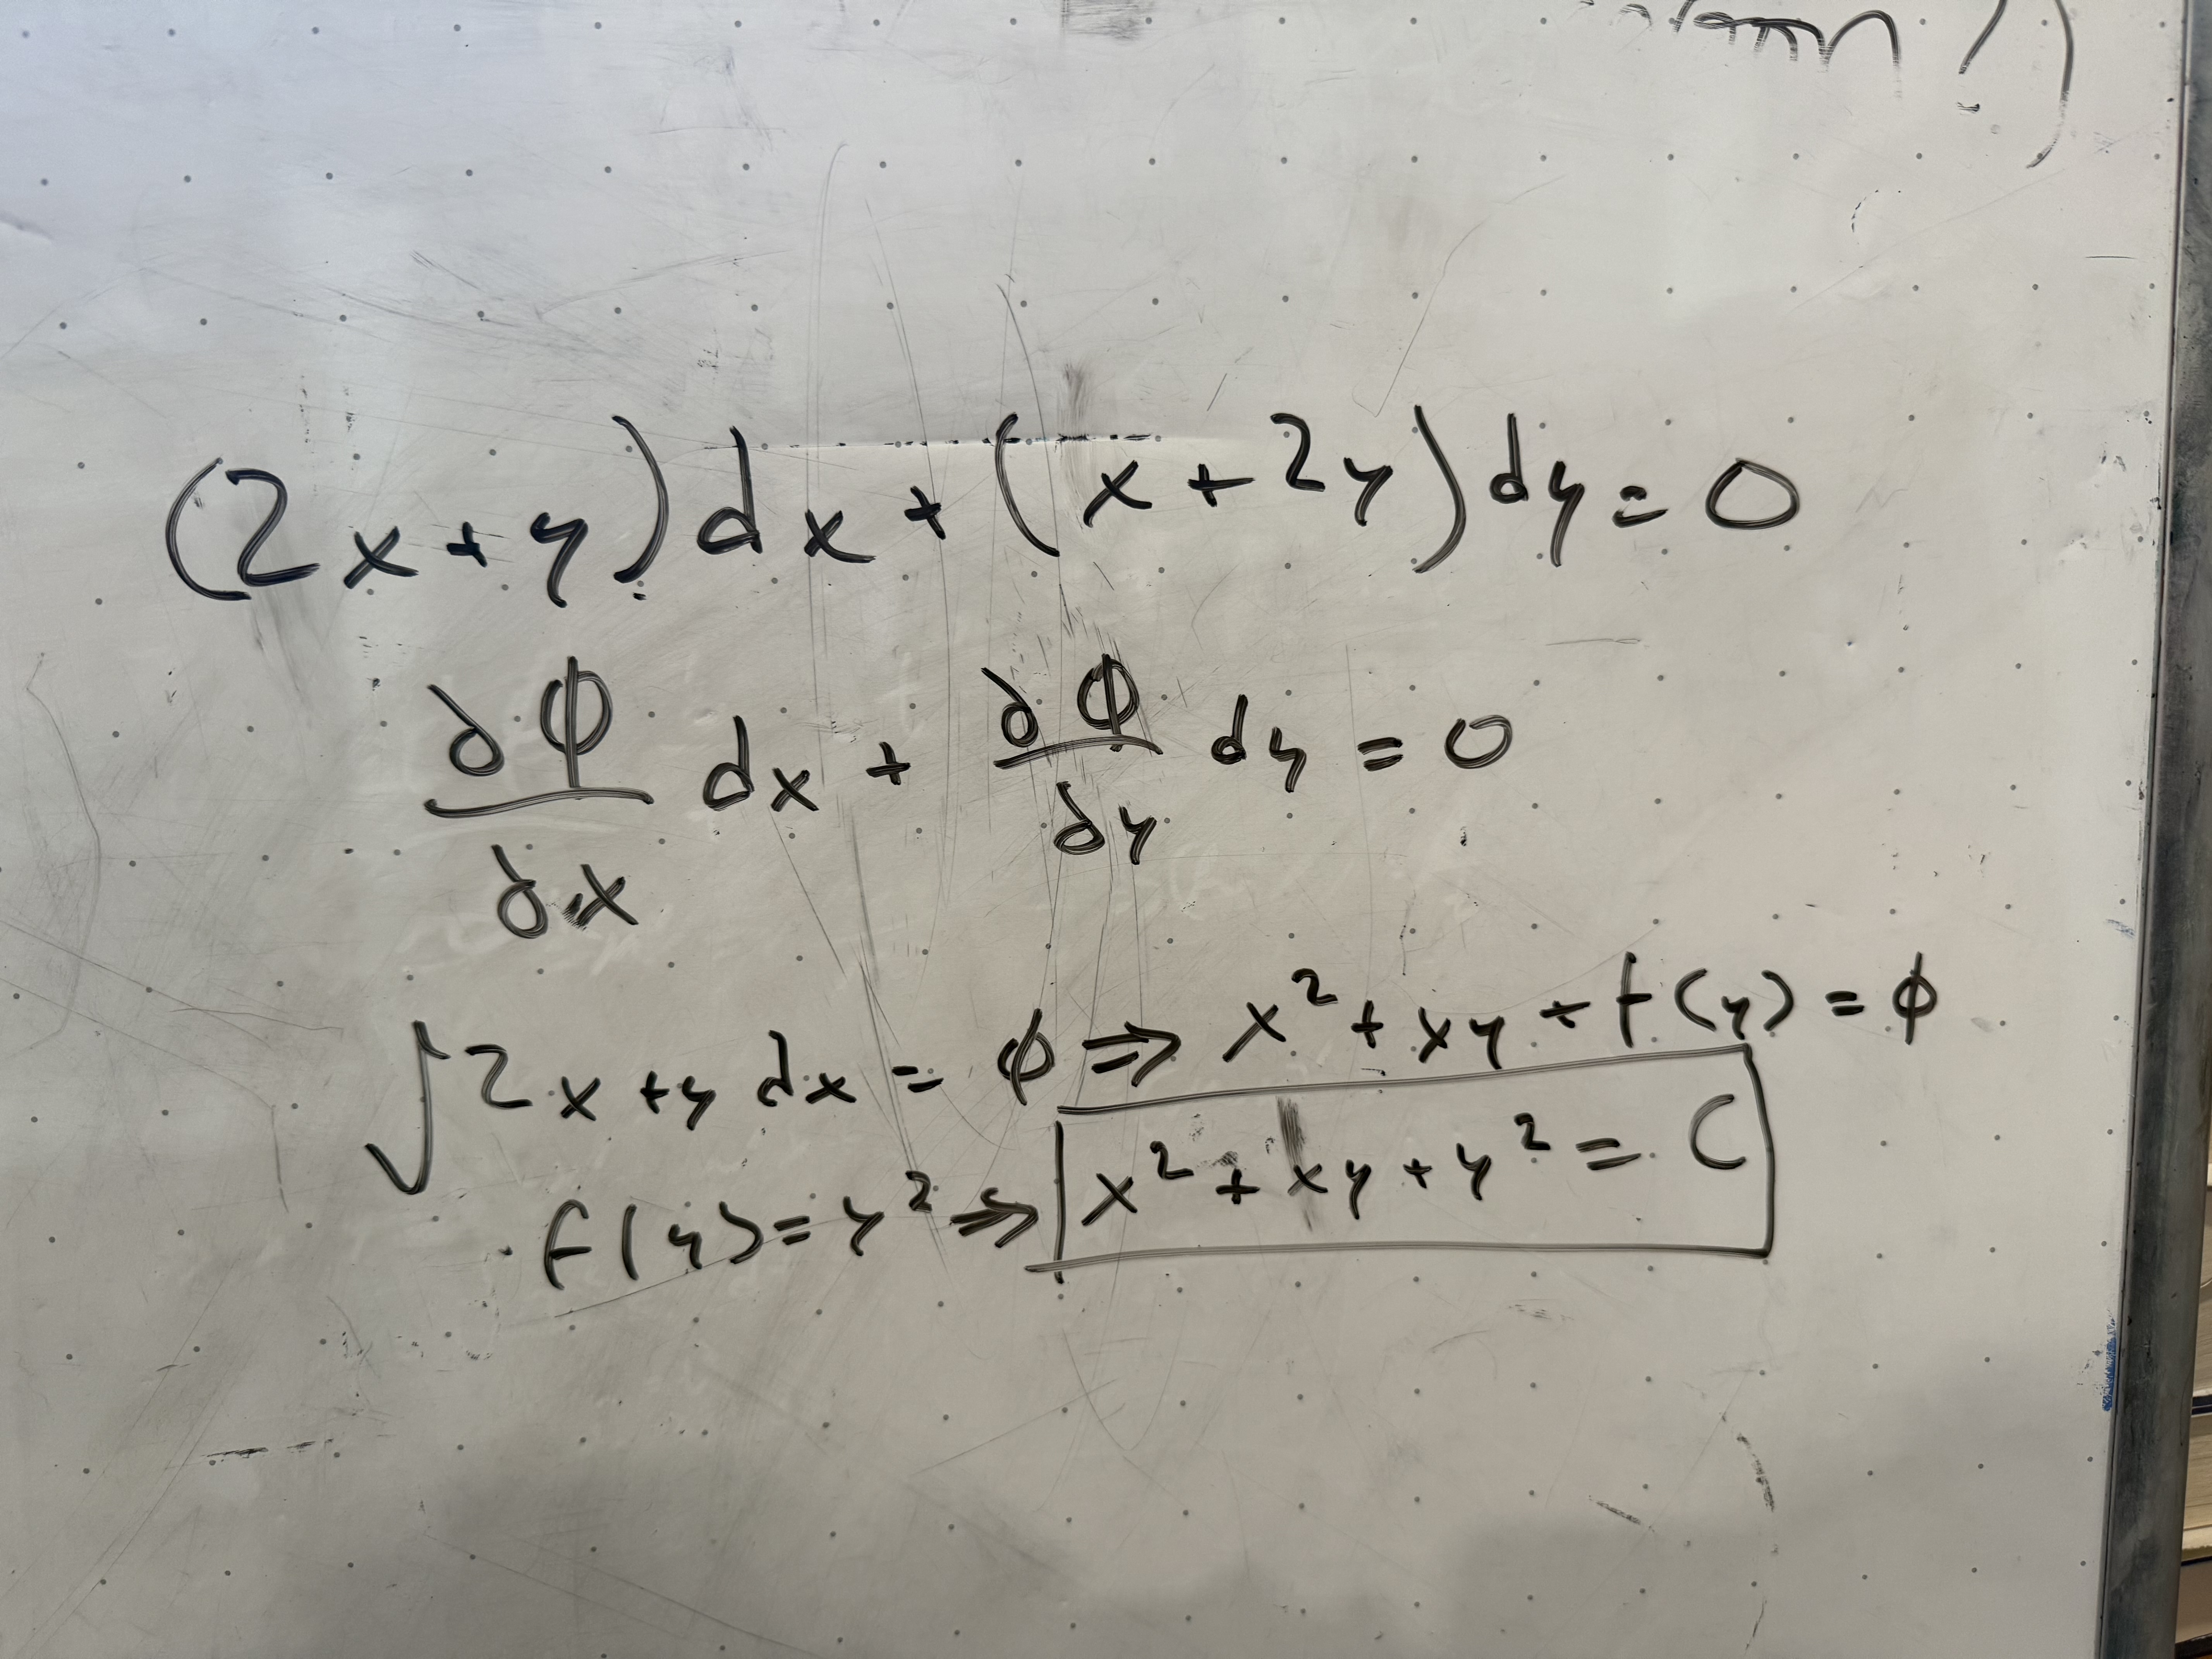 (2x+y)dx+(x+2y)dy=0
∂ϕ/∂x dx + ∂ϕ/∂y dy = 0
∫2x+y dx = ϕ ⇒ x²+xy+f(y)=ϕ
f(y)=y² ⇒ x²+xy+y²=C